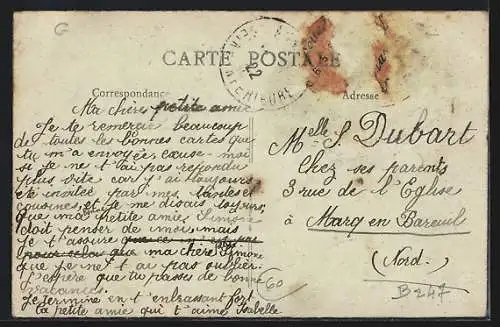 CARTE POSTALE
Correspondance
Adresse
Ma chère petite amie
Je te remercie beaucoup
de toutes les bonnes cartes que
tu m'a envoyée excuse-moi
si je ne t'ai pas répondu
plus vite car j'ai toujours
été invitée par mes tantes et
cousines, et je me disais toujours,
que ma petite amie Simone
doit penser de moi, mais
Je t'assure que ce n'est pas
pour cela que ma chère Simone
que je ne t'ai pas oublier.
J'espère que tu passes de bonne
vacances.
Je termine en t'enbrassant fort
ta petite amie qui t'aime Isabelle
Melle S. Dubart
Chez ses parents
3 rue de l'Eglise
à Marq en Bareuil
(Nord)
60
B247